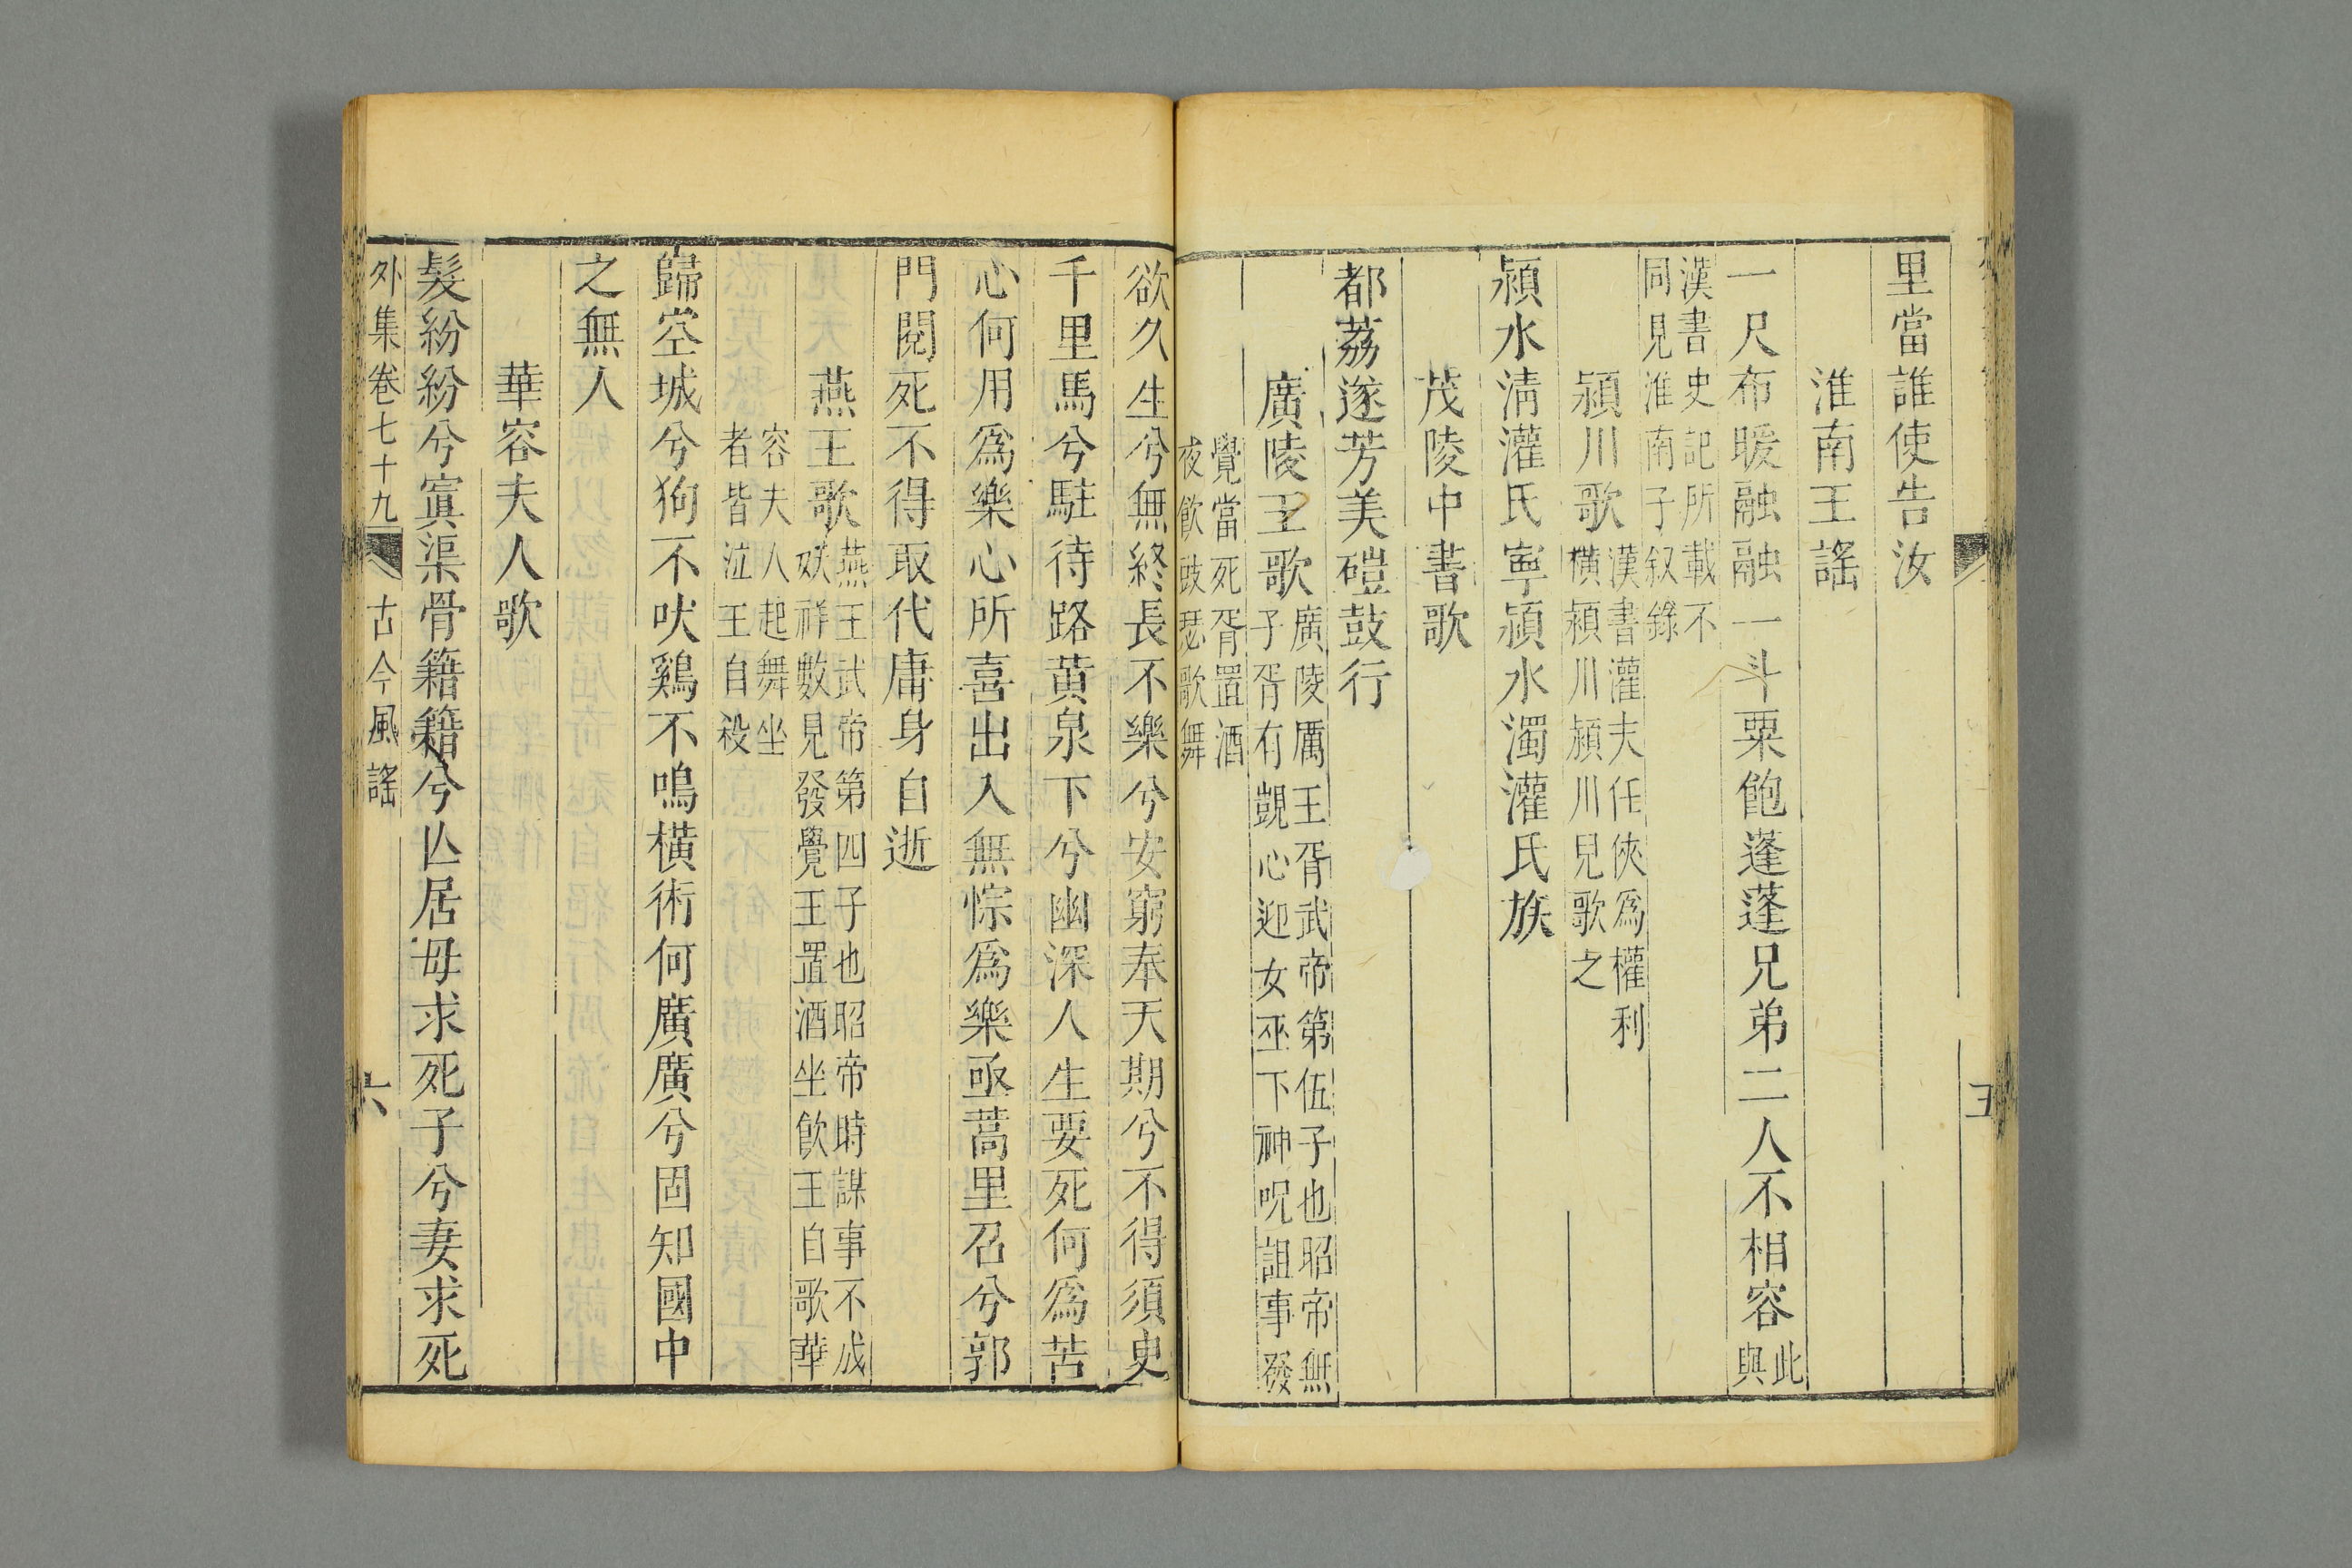 里當誰使告汝
淮南王謠
一尺布暖融融一斗粟飽蓬蓬兄弟二人不相容此與
漢書史記所載不
同見淮南子叙錄
潁川歌漢書灌夫任俠爲權利
橫潁川潁川兒歌之
潁水淸灌氏寧潁水濁灌氏族
茂陵中書歌
都荔遂芳美磑鼓行
廣陵王歌廣陵厲王胥武帝第伍子也昭帝無
子胥有覬心迎女巫下神呪詛事發
覺當死胥置酒
夜飮鼓瑟歌舞
欲久生兮無終長不樂兮安窮奉天期兮不得須臾
千里馬兮駐待路黃泉下兮幽深人生要死何爲苦
心何用爲樂心所喜出入無悰爲樂亟蒿里召兮郭
門閱死不得取代庸身自逝
燕王歌燕王武帝第四子也昭帝時謀事不成
妖祥數見發覺王置酒坐飮王自歌華
容夫人起舞坐
者皆泣王自殺
歸空城兮狗不吠鷄不鳴橫術何廣廣兮固知國中
之無人
華容夫人歌
髮紛紛兮寘渠骨籍籍兮亾居毋求死子兮妻求死
外集卷七十九 古今風謠 六